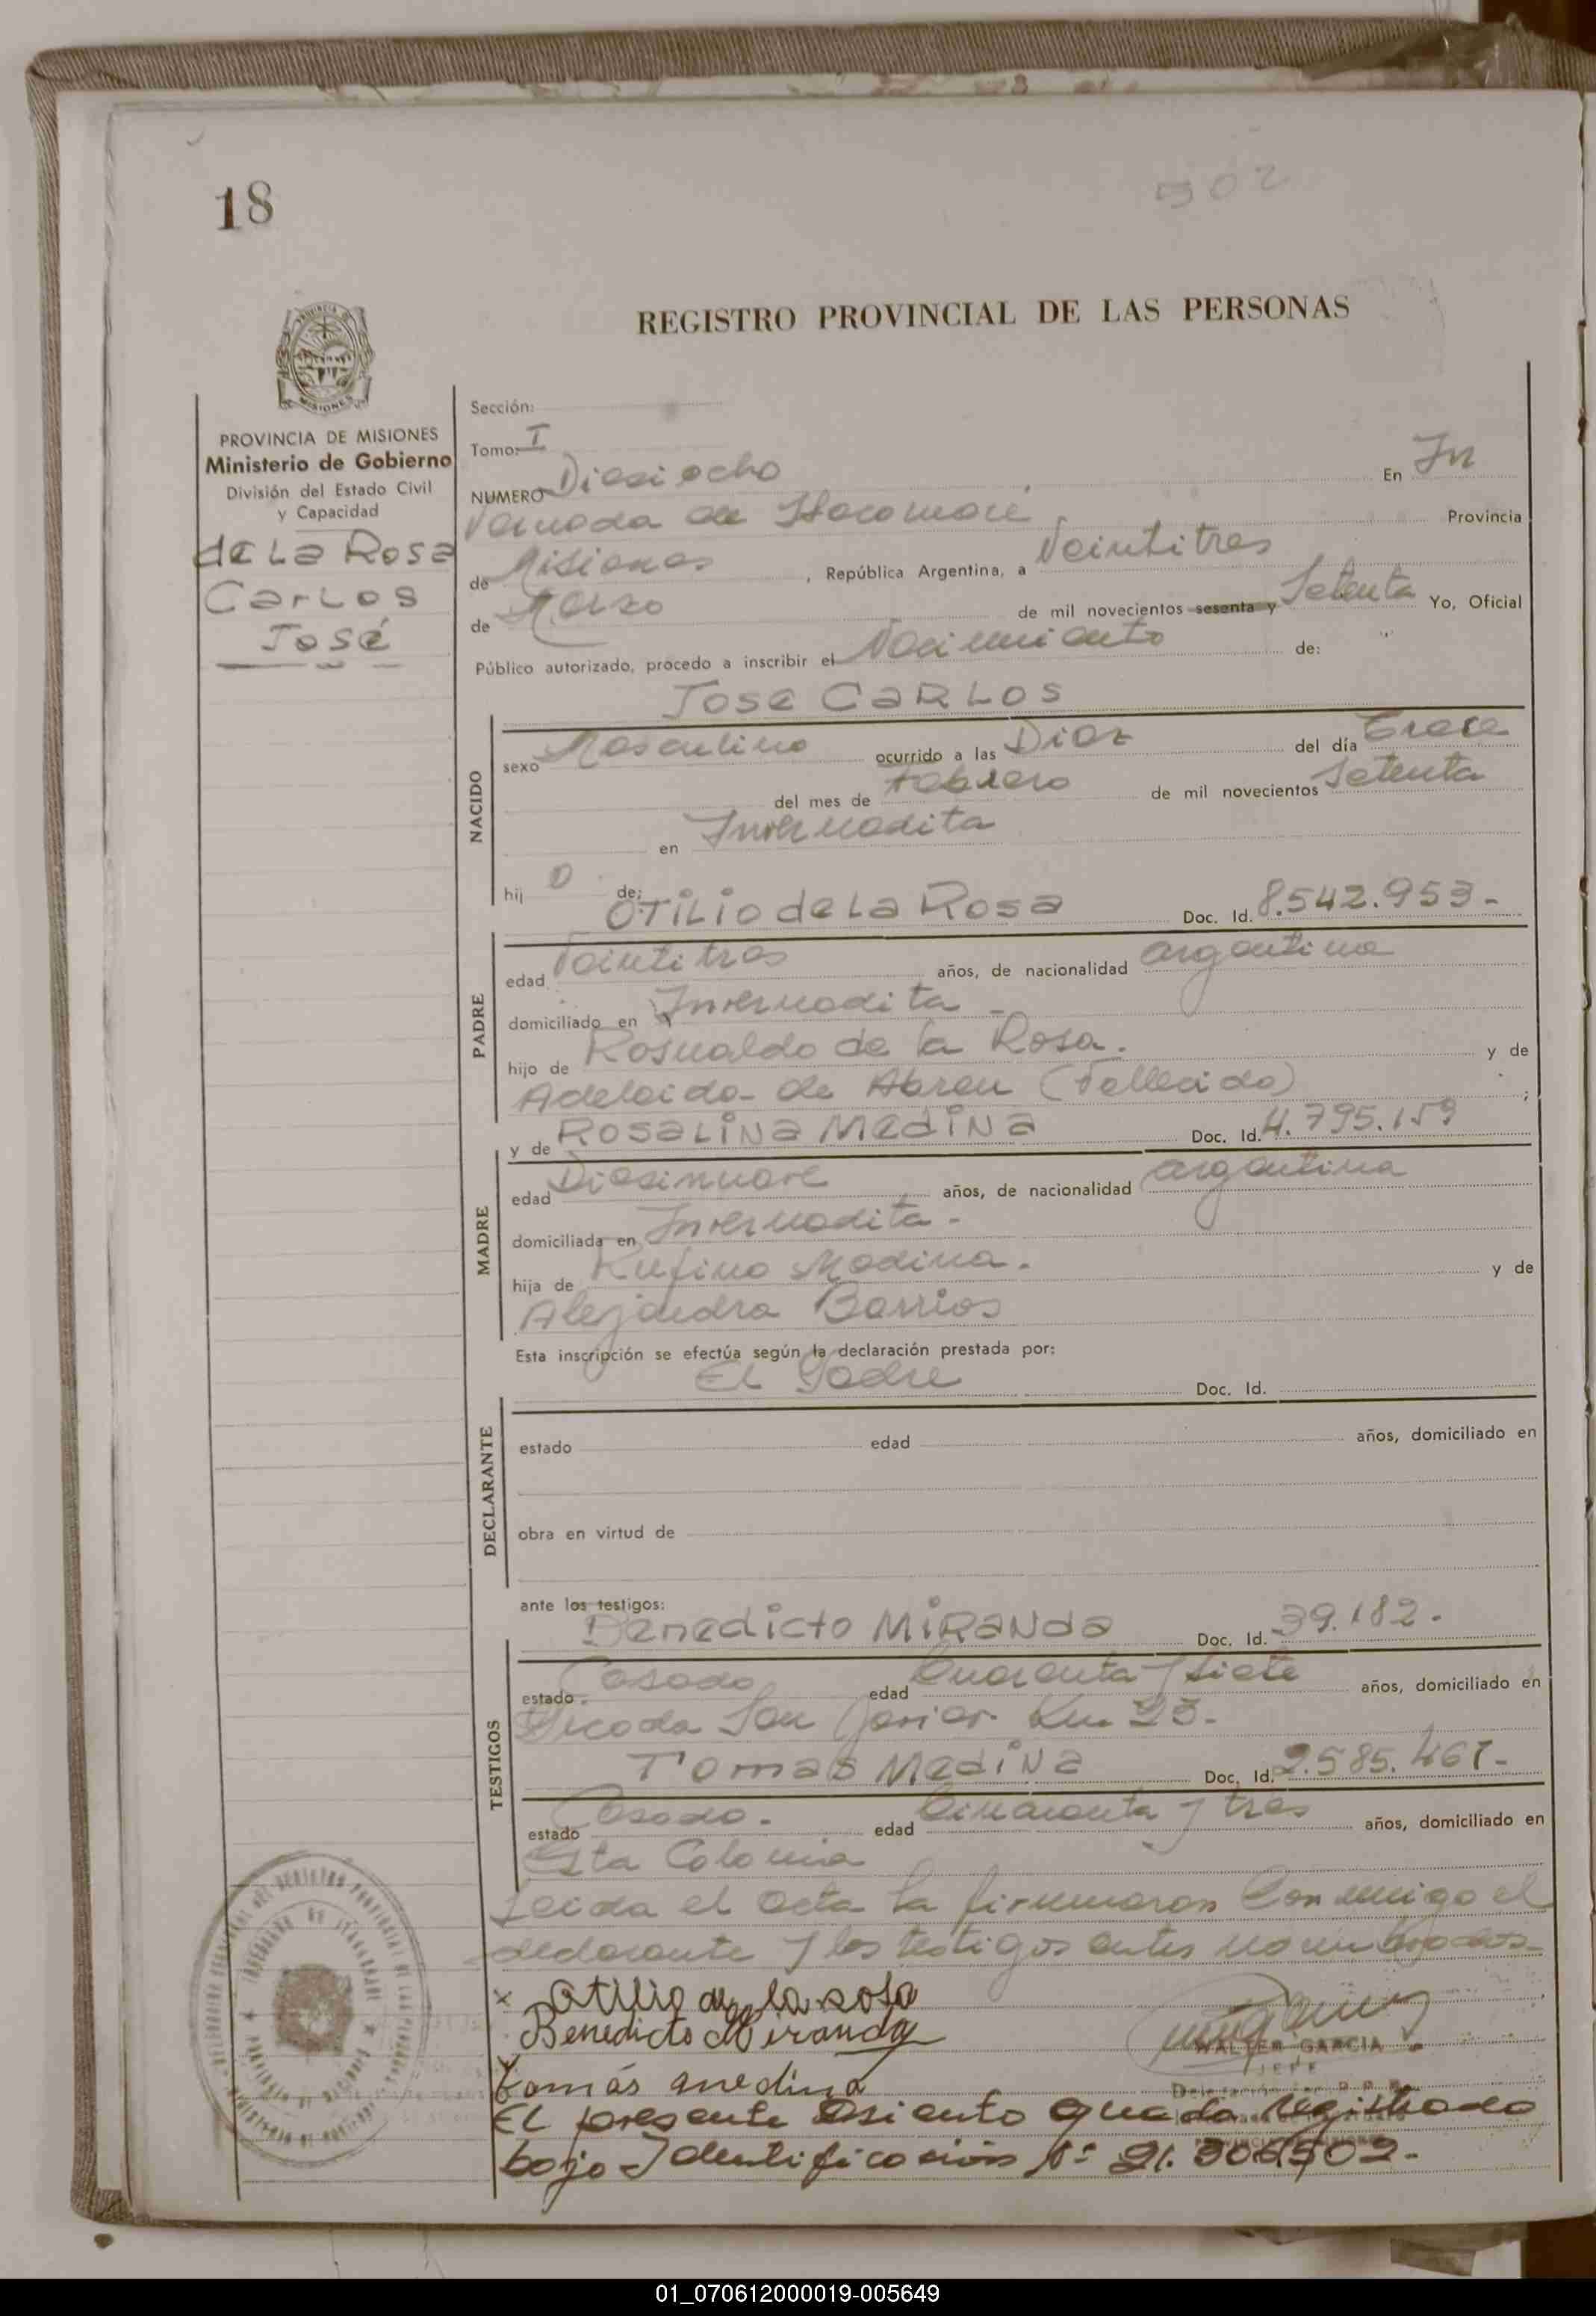 18
502
REGISTRO PROVINCIAL DE LAS PERSONAS
PROVINCIA DE MISIONES
Ministerio de Gobierno
División del Estado Civil
y Capacidad
de La Rosa
Carlos
José
Sección:
Tomo: I
NUMERO Dieciocho En In
vernada de Itacaruaré Provincia
de Misiones, República Argentina, a Veintitres
de Marzo de mil novecientos sesenta y Setenta Yo, Oficial
Público autorizado, procedo a inscribir el Nacimiento de:
JOSE CARLOS
NACIDO
sexo Masculino ocurrido a las Diez del día Trece
del mes de Febrero de mil novecientos Setenta
en Invernadita
hij o de:
OTILIO de La Rosa Doc. Id. 8.542.953-
PADRE
edad Veintitres años, de nacionalidad argentina
domiciliado en Invernadita-
hijo de Rosualdo de la Rosa. y de
Adelaida de Abreu (Fallecida);
y de ROSALINA MEDINA Doc. Id. 4.795.159
MADRE
edad Diecinueve años, de nacionalidad argentina
domiciliada en Invernadita-
hija de Rufino Medina. y de
Alejandra Barrios
Esta inscripción se efectúa según la declaración prestada por:
El Padre Doc. Id.
DECLARANTE
estado edad años, domiciliado en
obra en virtud de
ante los testigos:
Benedicto MIRANDA Doc. Id. 39.182.
TESTIGOS
estado Casado edad Cuarenta y siete años, domiciliado en
Picada San Javier Km 23-
Tomas MEDINA Doc. Id. 2.585.467-
estado Casado- edad Cincuenta y tres años, domiciliado en
Esta Colonia
Leida el acta la firmaron Conmigo el
declarante y los testigos antes nombrados-
x Otilio de la Rosa
Benedicto Miranda
WALTER GARCIA
JEFE
tomás medina
El presente Asiento queda registrado
bajo Identificación Nº 21.306502-
01_070612000019-005649